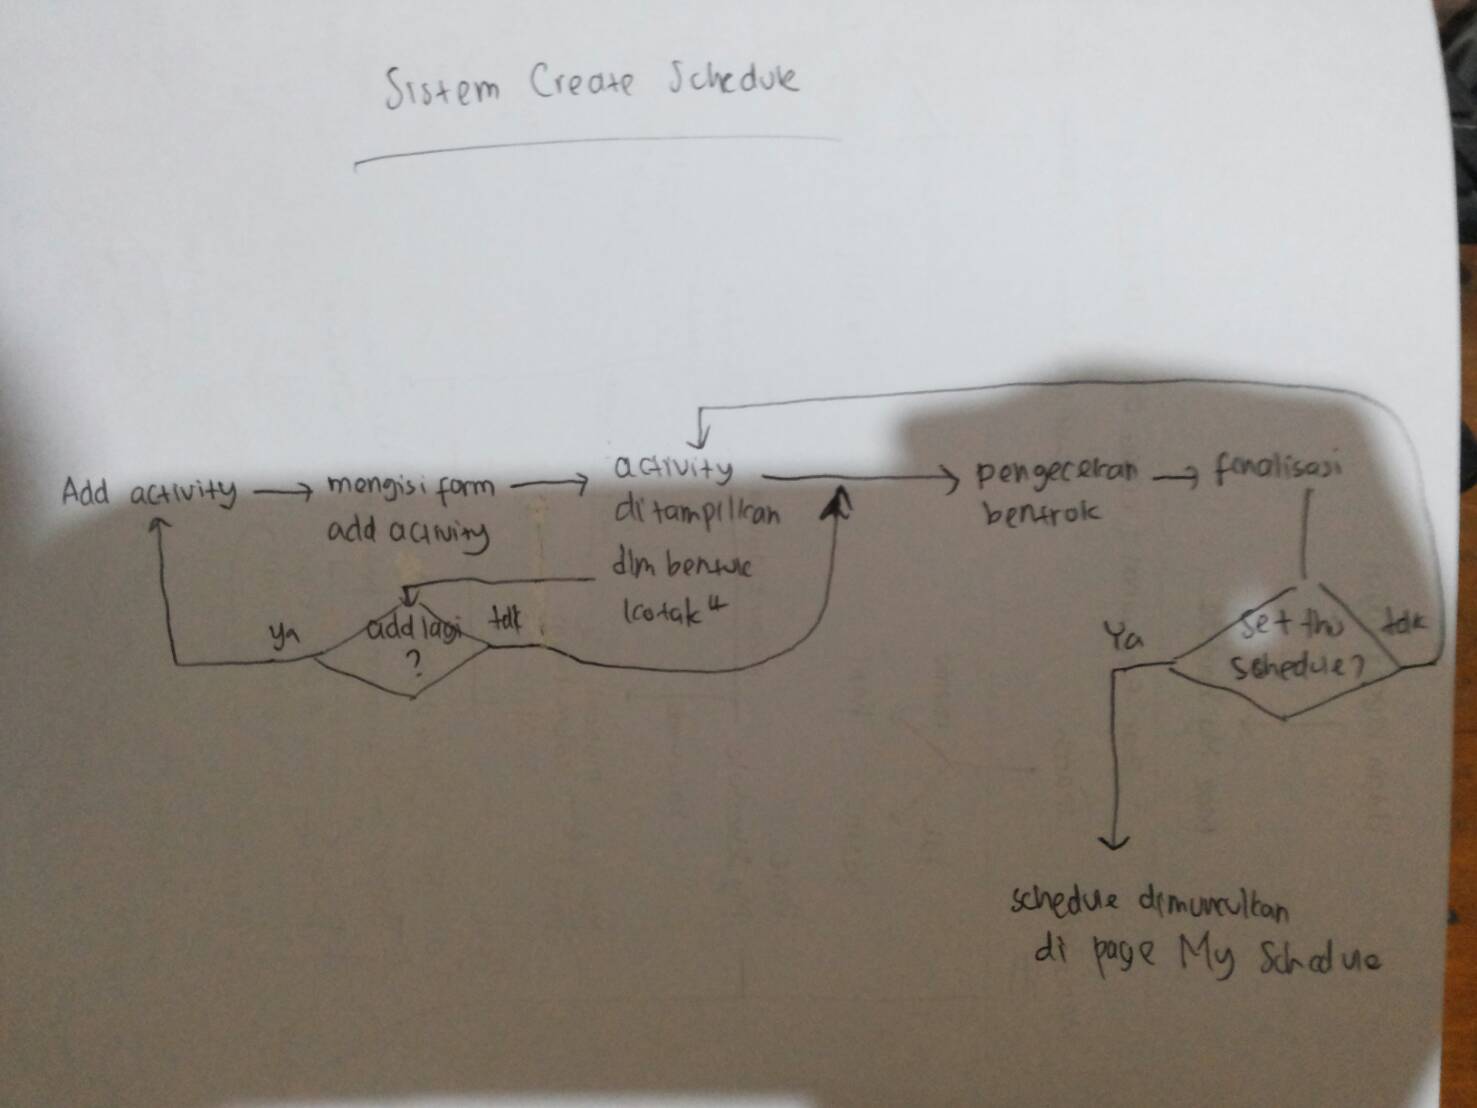 Sistem Create Schedule
Add activity
mengisi form
add activity
activity
ditampilkan
dlm bentuk
kotak"
pengecekan
bentrok
finalisasi
add lagi
?
ya
tdk
set this
schedule?
Ya
tdk
schedule dimunculkan
di page My Schedule